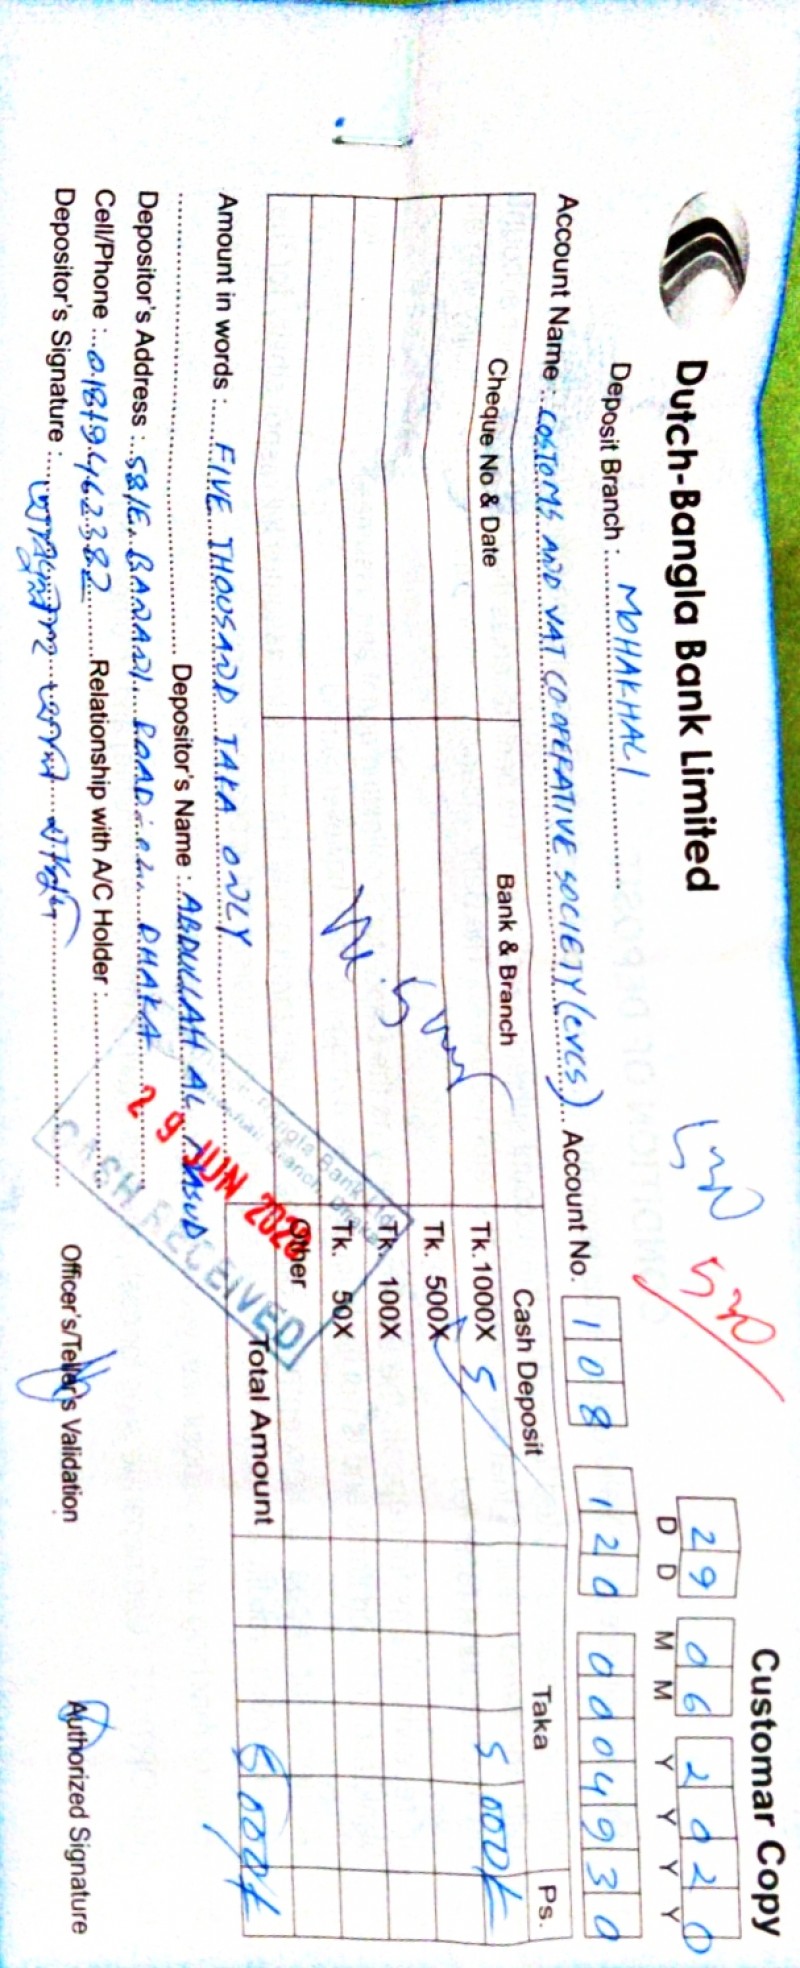 Customar Copy
Dutch-Bangla Bank Limited
29 06 2020
D D M M Y Y Y Y
Deposit Branch : MOHAKHALI
530
Account Name : CUSTOMS AND VAT CO OPERATIVE SOCIETY (CVCS) Account No. 108 120 0004930
Cheque No & Date Bank & Branch Cash Deposit Taka Ps.
Tk.1000X 5 5 000/
Tk. 500X
Tk. 100X
Tk. 50X
Other
Total Amount 5 000/
Amount in words : FIVE THOUSAND TAKA ONLY
Depositor's Name : ABDULLAH AL MASUD
Depositor's Address : 58/E, BANANI ROAD DHAKA
Cell/Phone : 01819462382 Relationship with A/C Holder :
Depositor's Signature :
Officer's/Teller's Validation Authorized Signature
Bangla Bank Ltd
Branch, Dhaka
29 JUN 2020
CASH RECEIVED